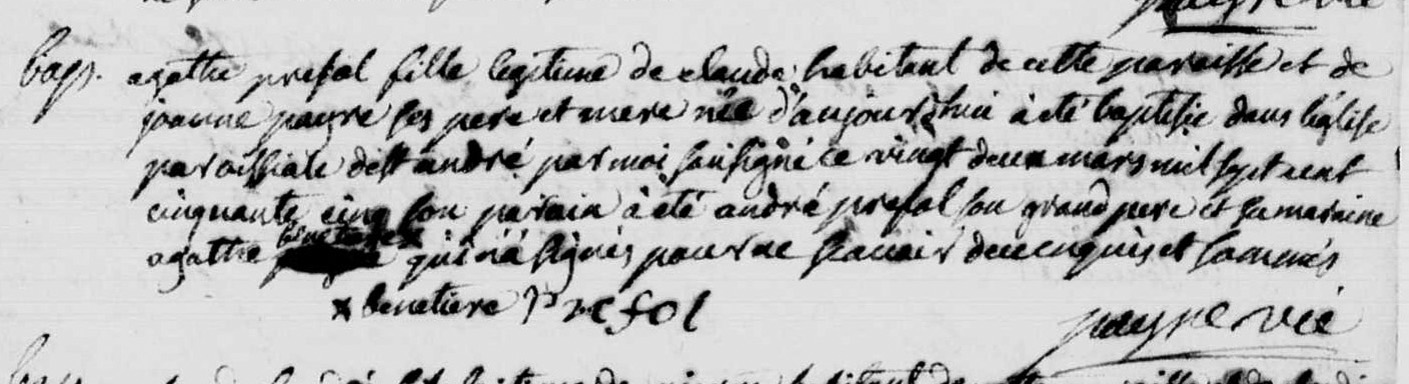 payre vié
bap. agathe presol fille legitime de claude habitant de cette paroisse et de
jeanne payre ses pere et mere née d'aujourd'huy à été baptisée dans léglise
paroissiale de st andré par moi soussigné ce vingt deux mars mil sept cent
cinquante cinq son parain à été andré presol son grand pere et sa maraine
agathe benetiere x qui n'a signés pour ne scavoir de ce enquis et sommés
x benetiere Presol
payre vié